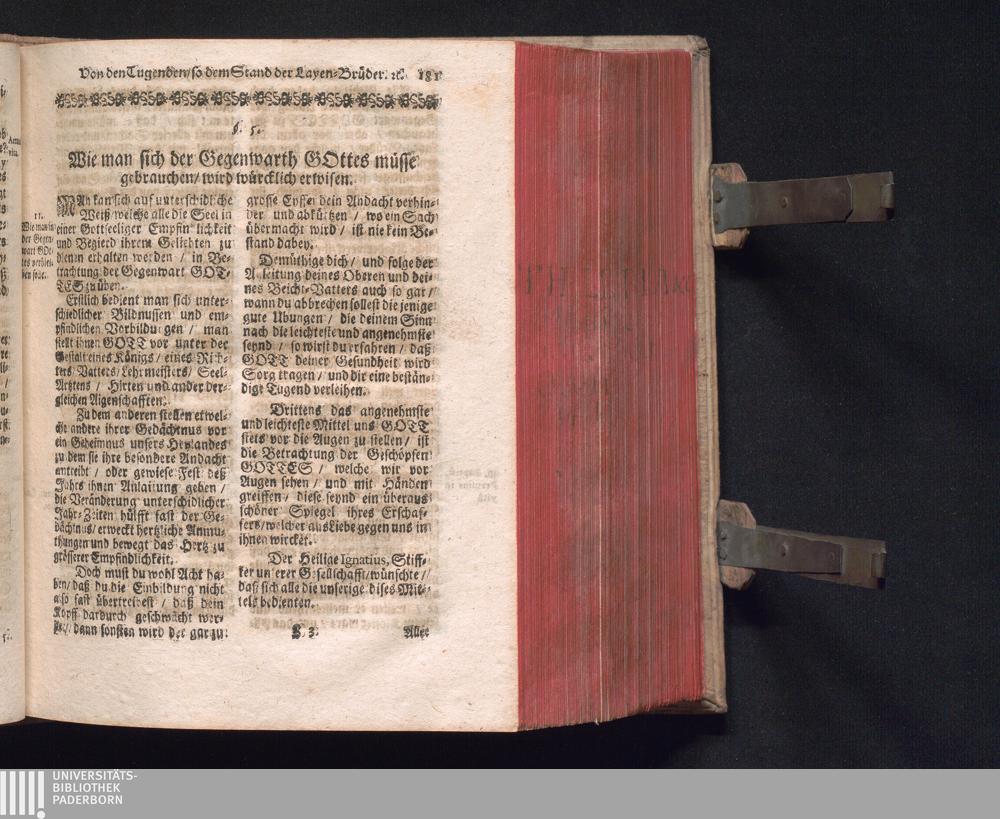 Von den Tugenden / so dem Stand der Layen-Brüder. ꝛc. 181
§. 5.
Wie man sich der Gegenwarth GOttes müsse
gebrauchen / wird würcklich erwisen.
11.
Wie man in
der Gegen-
wart GOt-
tes
MAn kan sich auf unterschidliche
Weiß / welche alle die Seel in
einer Gottseeliger Empfindlichkeit
und Begierd ihrem Geliebten zu
dienen erhalten werden / in Be-
trachtung der Gegenwart GOT-
TES zu üben.
Erstlich bedient man sich unter-
schiedlicher Bildnussen und em-
pfindlichen Vorbildungen / man
stellt ihnen GOTT vor unter der
Gestalt eines Königs / eines Rich-
ters / Vatters / Lehrmeisters / Seel-
Artztens / Hirten und ander der-
gleichen Aigenschafften.
Zu dem anderen stellen etwel-
che andere ihrer Gedächtnus vor
ein Geheimnus unsers Heylandes
zu dem sie ihre besondere Andacht
antreibt / oder gewiese Fest deß
Jahrs ihnen Anlaitung geben /
die Veränderung unterschidlicher
Jahr-Zeiten hülfft fast der Ge-
dächtnus / erweckt hertzliche Anmu-
thungen und bewegt das Hertz zu
grösserer Empfindlichkeit.
Doch must du wohl Acht ha-
ben / daß du die Einbildung nicht
also fast übertreibest / daß dein
Kopff dardurch geschwächt wer-
de / dann sonsten wird der gar zu
grosse Eyffer dein Andacht verhin-
der und abkürtzen / wo ein Sach
übermacht wird / ist nie kein Be-
stand dabey.
Demüthige dich / und folge der
Anleitung deines Oberen und dei-
nes Beicht-Vatters auch so gar /
wann du abbrechen sollest die jenige
gute Ubungen / die deinem Sinn
nach die leichteste und angenehmste
seynd / so wirst du erfahren / daß
GOTT deiner Gesundheit wird
Sorg tragen / und dir eine bestän-
dige Tugend verleihen.
Drittens das angenehmste
und leichteste Mittel uns GOTT
stets vor die Augen zu stellen / ist
die Betrachtung der Geschöpfen
GOTTES / welche wir vor
Augen sehen / und mit Händen
greiffen / diese seynd ein überaus
schöner Spiegel ihres Erschaf-
fers / welcher aus Liebe gegen uns in
ihnen wircket.
Der Heilige Ignatius, Stiff-
ter unserer Gesellschafft / wünschte /
daß sich alle die unserige dises Mit-
tels bedienten.
Aller
UNIVERSITÄTS-
BIBLIOTHEK
PADERBORN